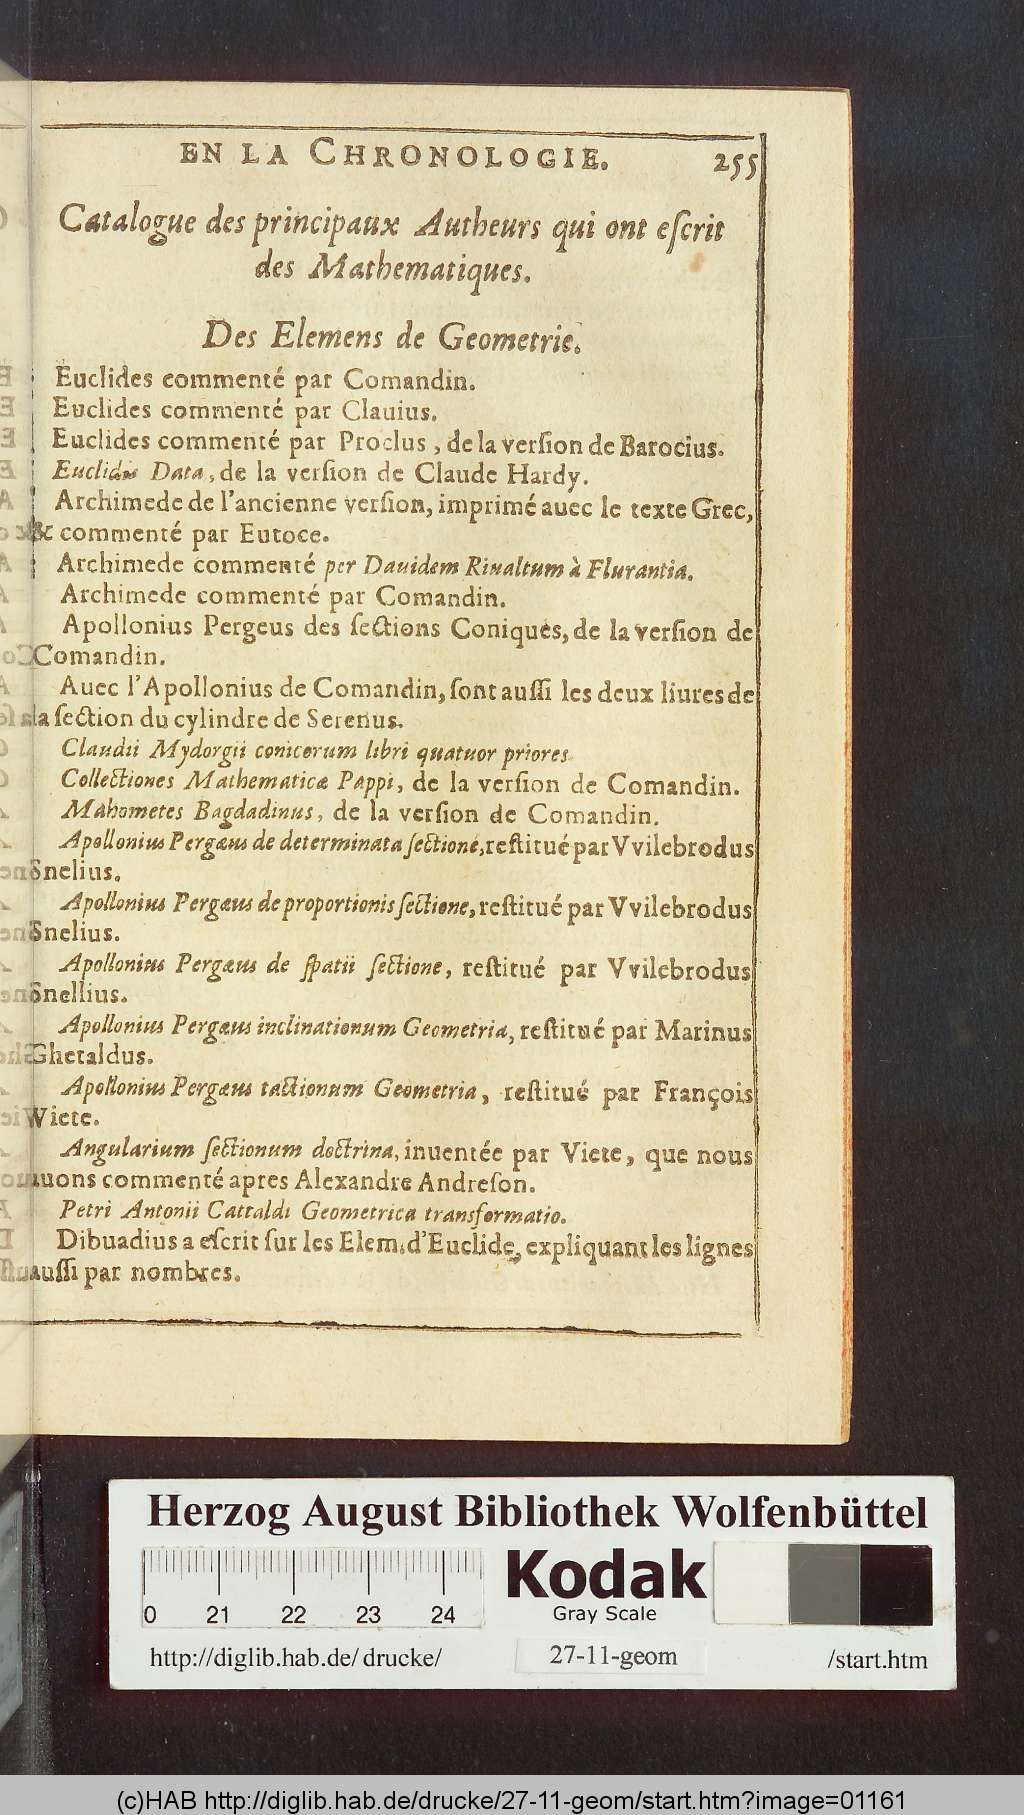 EN LA CHRONOLOGIE. 255
Catalogue des principaux Autheurs qui ont eſcrit
des Mathematiques.
Des Elemens de Geometrie.
Euclides commenté par Comandin.
Euclides commenté par Clauius.
Euclides commenté par Proclus, de la verſion de Barocius.
Euclidis Data, de la verſion de Claude Hardy.
Archimede de l'ancienne verſion, imprimé auec le texte Grec,
& commenté par Eutoce.
Archimede commenté per Dauidem Riualtum à Flurantia.
Archimede commenté par Comandin.
Apollonius Pergeus des ſections Coniques, de la verſion de
Comandin.
Auec l'Apollonius de Comandin, ſont auſſi les deux liures de
la ſection du cylindre de Serenus.
Claudii Mydorgii conicorum libri quatuor priores.
Collectiones Mathematicæ Pappi, de la verſion de Comandin.
Mahometes Bagdadinus, de la verſion de Comandin.
Apollonius Pergæus de determinata ſectione, reſtitué par VVilebrodus
Snelius.
Apollonius Pergæus de proportionis ſectione, reſtitué par VVilebrodus
Snelius.
Apollonius Pergæus de ſpatii ſectione, reſtitué par VVilebrodus
Snellius.
Apollonius Pergæus inclinationum Geometria, reſtitué par Marinus
Ghetaldus.
Apollonius Pergæus tactionum Geometria, reſtitué par François
Viete.
Angularium ſectionum doctrina, inuentée par Viete, que nous
auons commenté apres Alexandre Andreſon.
Petri Antonii Cattaldi Geometrica transformatio.
Dibuadius a eſcrit ſur les Elem. d'Euclide, expliquant les lignes
auſſi par nombres.
Herzog August Bibliothek Wolfenbüttel
0 21 22 23 24
Kodak
Gray Scale
http://diglib.hab.de/ drucke/ 27-11-geom /start.htm
(c)HAB http://diglib.hab.de/drucke/27-11-geom/start.htm?image=01161